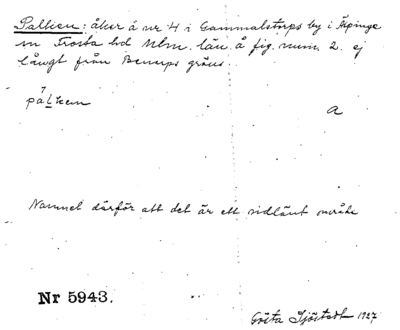 Palken: åker å nr 4 i Gammalstorps by i Äspinge
sn Frosta hd Mlm. län. å fig. num. 2. ej
långt från Benarps gräns.
pålken
a
Namnet därför att det är ett sidlänt område
Nr 5943.
Gösta Sjöstedt 1927